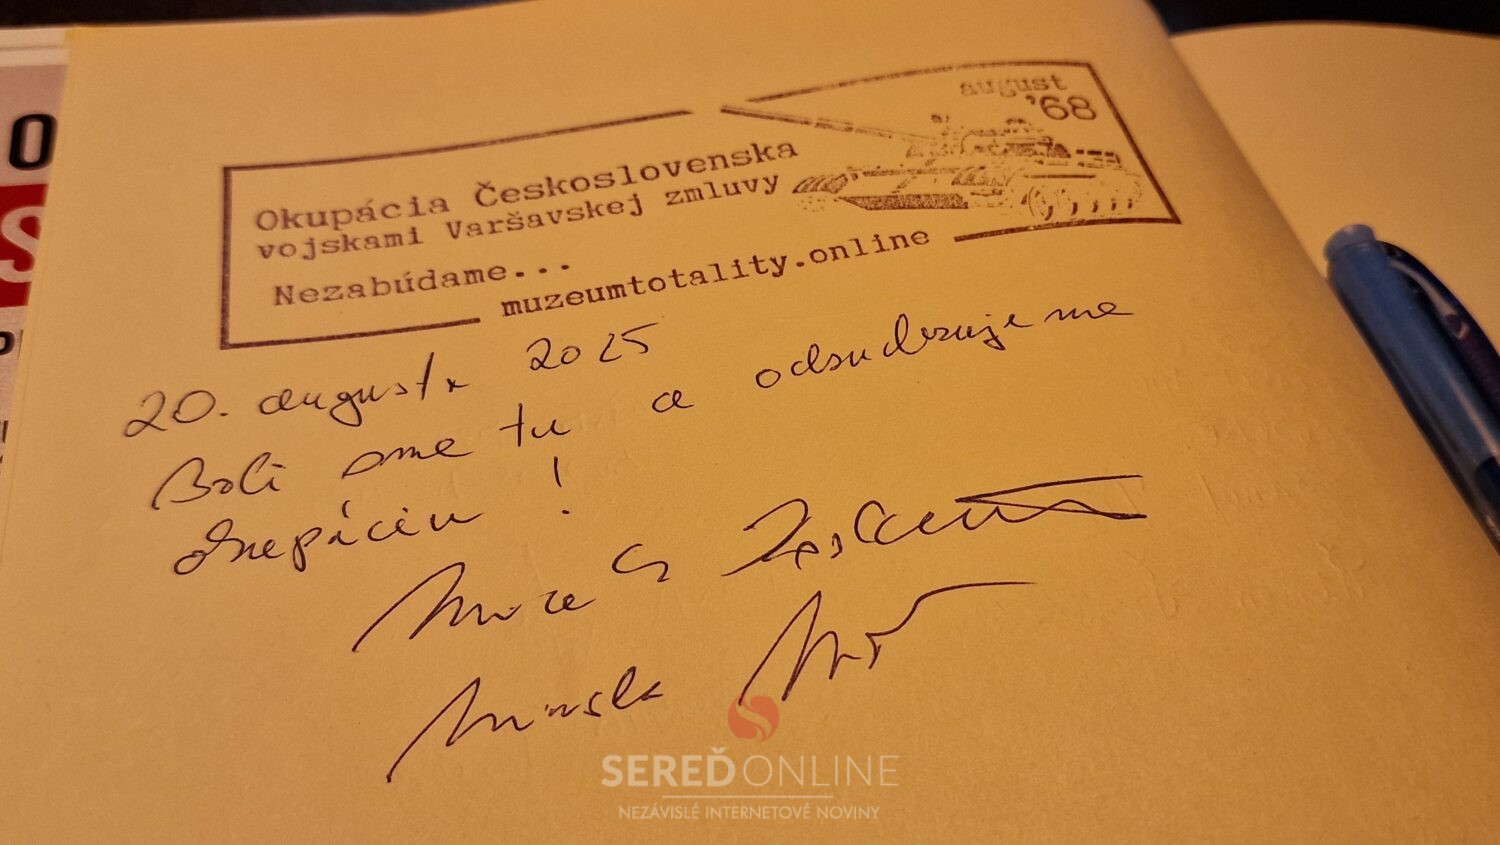 august
'68
Okupácia Československa
vojskami Varšavskej zmluvy
Nezabúdame...
muzeumtotality.online
20. augusta 2025
Boli sme tu a odsudzujeme
okupáciu!
SEREĎ ONLINE
NEZÁVISLÉ INTERNETOVÉ NOVINY